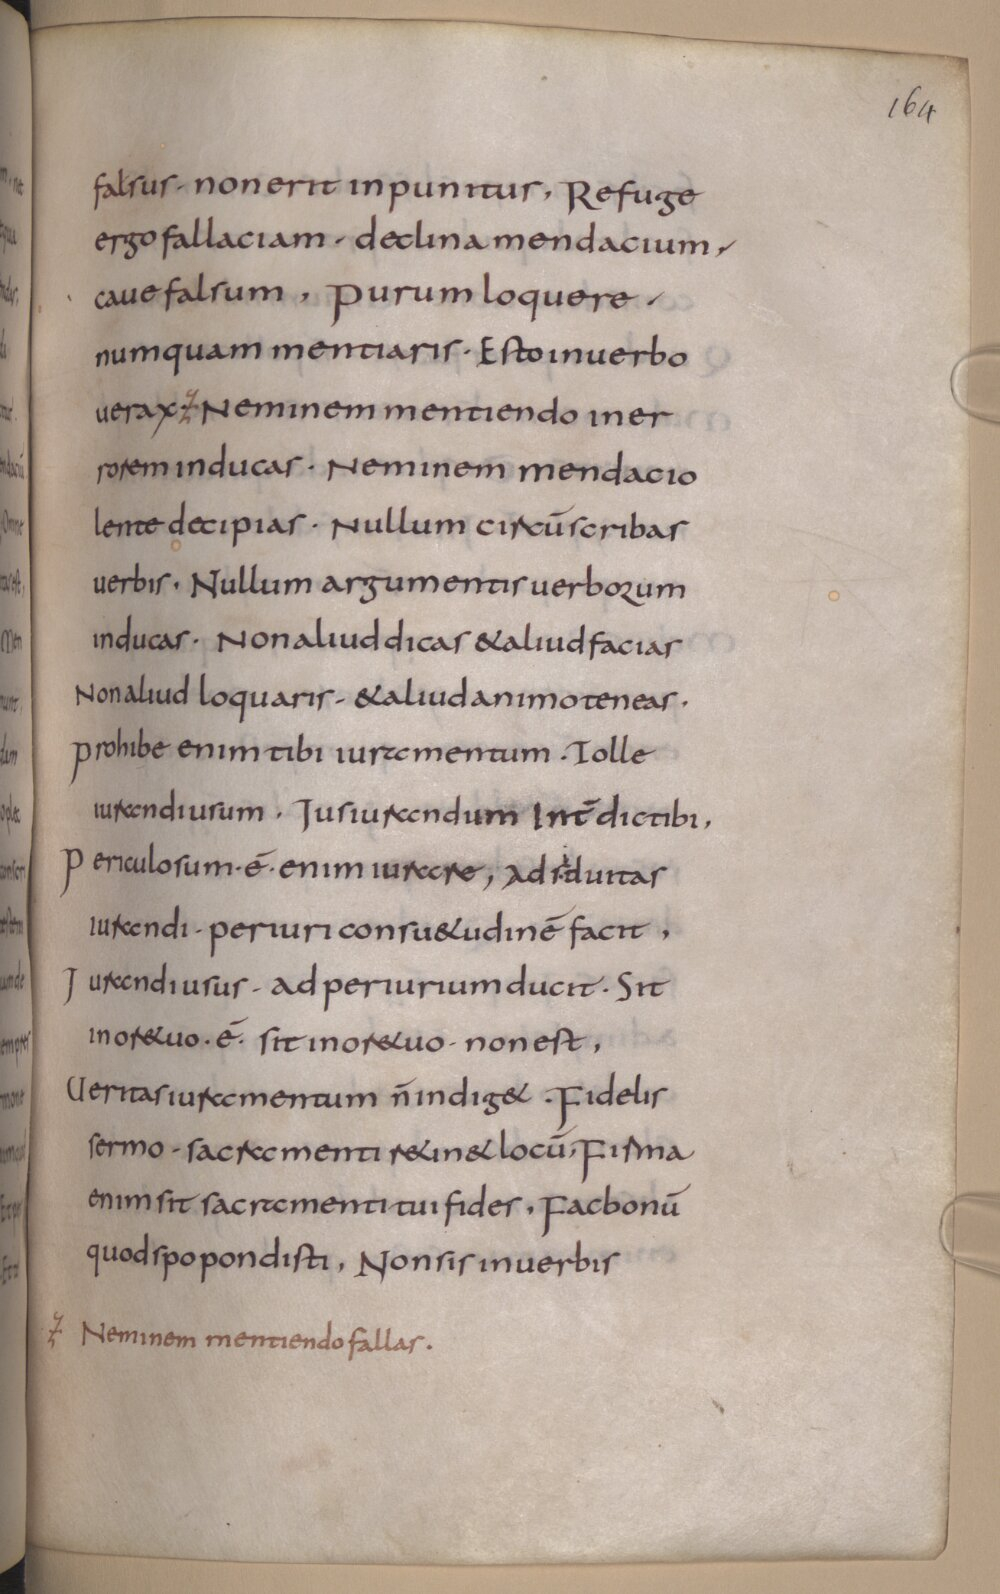 164
falsus. non erit inpunitus, Refuge
ergo fallaciam. declina mendacium,
caue falsum, Purum loquere.
numquam mentiaris. Esto in uerbo
uerax; Neminem mentiendo in er
rorem inducas. Neminem mendacio
lente decipias. Nullum circūscribas
uerbis. Nullum argumentis uerborum
inducas. Non aliud dicas & aliud facias
Non aliud loquaris. & aliud animo teneas.
Prohibe enim tibi iuramentum. Tolle
iurandi usum. Jusiurandum Int̄dictibi,
Periculosum. ē. enim iurare, Adsiduitas
iurandi. periuri consu&udinē facit,
Jurandi usus. ad periurium ducit. Sit
in ore &uo. ē. sit in ore &uo. non est,
Ueritas iuramentum n̄ indig&. Fidelis
sermo. sacramenti r&in& locū, Firma
enim sit sacramenti tui fides, Fac bonū
quod spopondisti, Non sis in uerbis
Neminem mentiendo fallas.